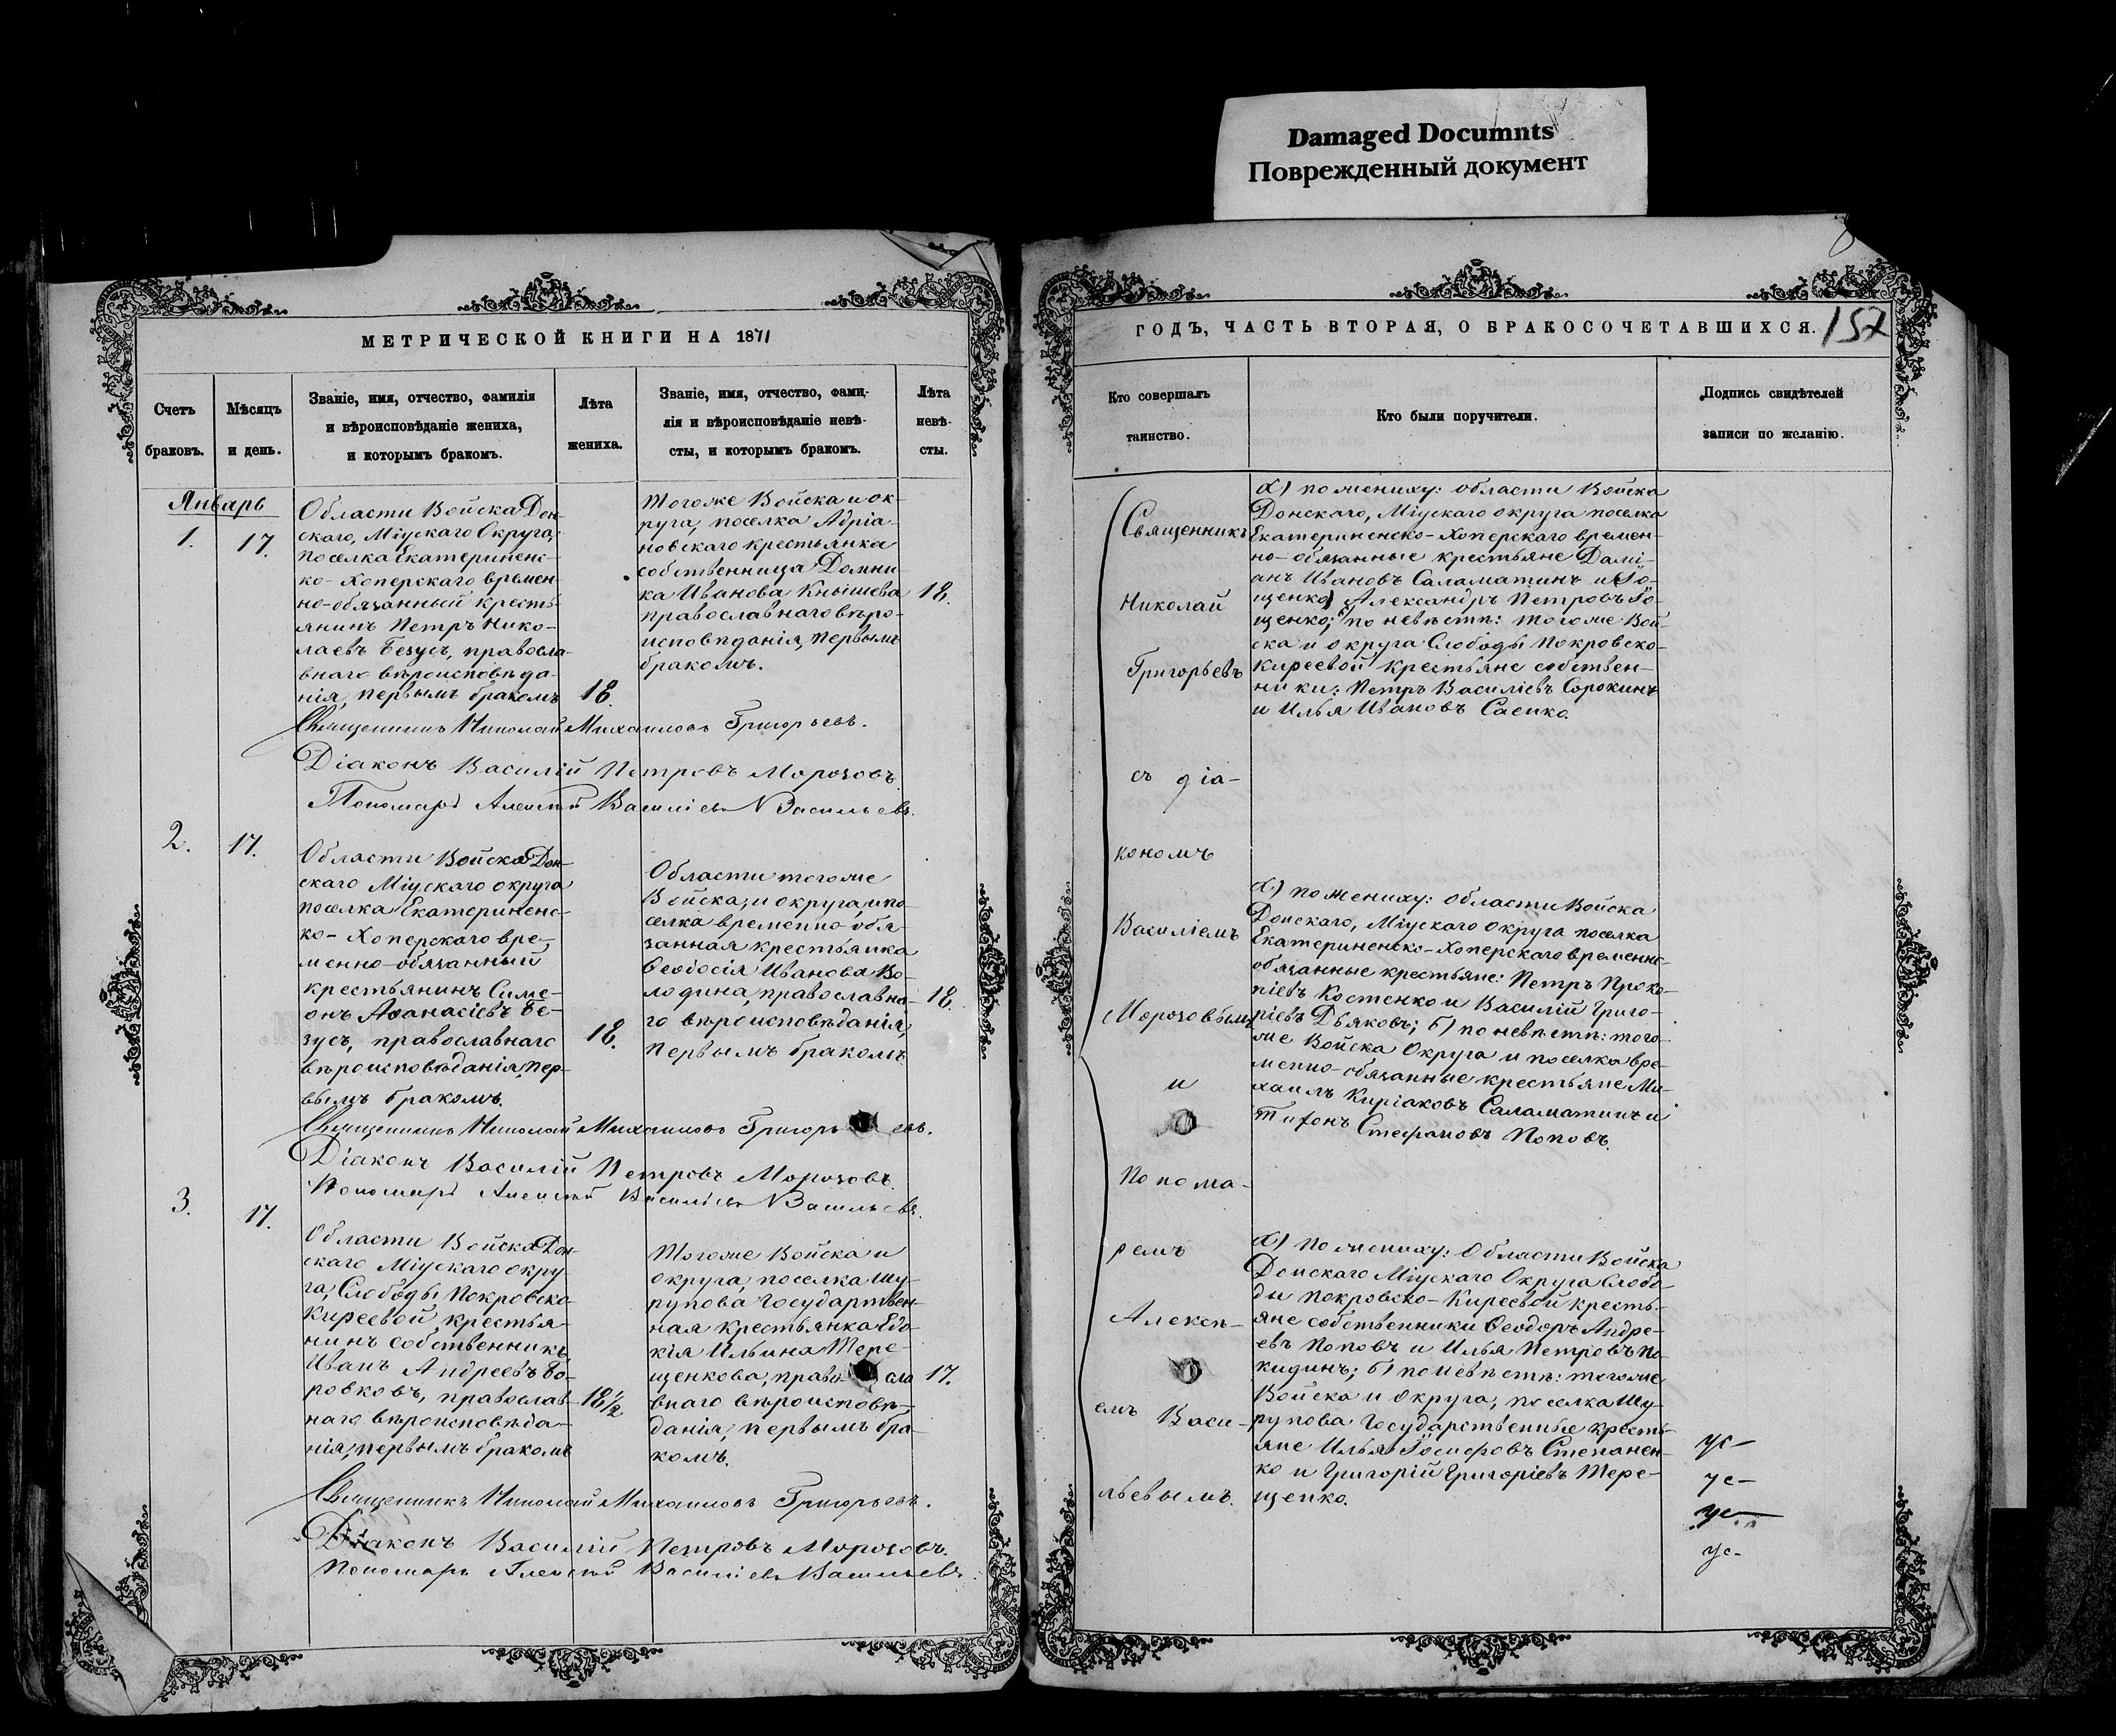 Damaged Documnts
Поврежденный документ
МЕТРИЧЕСКОЙ КНИГИ НА 1871
Счетъ
браковъ.
Мѣсяцъ
и день.
Званіе, имя, отчество, фамилія
и вѣроисповѣданіе жениха,
и которымъ бракомъ.
Лѣта
жениха.
Званіе, имя, отчество, фами-
лія и вѣроисповѣданіе невѣ-
сты, и которымъ бракомъ.
Лѣта
невѣ-
сты.
Январь
1.
17.
Области Войска Дон-
скаго, Міускаго Округа,
поселка Екатериненс-
ко-Хоперскаго времен-
но-обязанный кресть-
янинъ Петръ Нико-
лаевъ Безусъ, правосла-
внаго вѣроисповѣда-
нія, первымъ бракомъ
18.
Тогоже Войска и ок-
руга, поселка Адріа-
новскаго крестьянка
собственница Домни-
ка Иванова Кнышева
православнаго вѣро-
исповѣданія, первымъ
бракомъ.
18.
Священникъ Николай Михаиловъ Григорьевъ.
Діаконъ Василій Петровъ Морозовъ.
Пономарь Алексѣй Василіевъ Васильевъ.
2.
17.
Области Войска Дон-
скаго Міускаго округа
поселка Екатериненс-
ко-Хоперскаго вре-
менно-обязанный
крестьянинъ Симе-
онъ Аѳанасіевъ Бе-
зусъ, православнаго
вѣроисповѣданія, пер-
вымъ бракомъ.
18.
Области тогоже
Войска, и округа, и по-
селка временно-обя-
занная крестьянка
Ѳеодосія Иванова Во-
лодина, православна-
го вѣроисповѣданія,
первымъ бракомъ.
18.
Священникъ Николай Михаиловъ Григорьевъ.
Діаконъ Василій Петровъ Морозовъ.
Пономарь Алексѣй Василіевъ Васильевъ.
3.
17.
Области Войска Дон-
скаго Міускаго окру-
га, Слободы Покровско-
Киреевой крестья-
нинъ собственникъ
Иванъ Андреевъ Бо-
ровковъ, православ-
наго вѣроисповѣда-
нія, первымъ бракомъ
18 1/2
Тогоже Войска и
округа, поселка Шу-
рупова Государствен-
ная крестьянка Евдо-
кія Ильина Тере-
щенкова, правосла
внаго вѣроисповѣ-
данія, первымъ бра-
комъ.
17.
Священникъ Николай Михаиловъ Григорьевъ.
Діаконъ Василій Петровъ Морозовъ.
Пономарь Алексѣй Василіевъ Васильевъ.
ГОДЪ, ЧАСТЬ ВТОРАЯ, О БРАКОСОЧЕТАВШИХСЯ.
157
Кто совершалъ
таинство.
Кто были поручители.
Подпись свидѣтелей
записи по желанію.
Священникъ
Николай
Григорьевъ
съ діа-
кономъ
Василіемъ
Морозовымъ
и
понома-
ремъ
Алексѣ-
емъ Васи-
льевымъ.
а) по жениху: области Войска
Донскаго, Міускаго округа поселка
Екатериненско-Хоперскаго времен-
но-обязанные крестьяне Дамі-
анъ Ивановъ Саламатинъ и
Александръ Петровъ
щенко; б) по невѣстѣ: тогоже Вой-
ска и округа Слободы Покровско-
Киреевой крестьяне собствен-
ники: Петръ Василіевъ Сорокинъ
и Илья Ивановъ Саенко.
а) по жениху: области Войска
Донскаго, Міускаго округа поселка
Екатериненско-Хоперскаго временно-
обязанные крестьяне: Петръ Проко-
піевъ Костенко и Василій Григо-
ріевъ Дьяковъ; б) по невѣстѣ: того-
же Войска Округа и поселка вре-
менно-обязанные крестьяне Ми-
хаилъ Киріаковъ Саламатинъ и
Тифонъ Стефановъ Поповъ.
а) по жениху: Области Войска
Донскаго Міускаго Округа Слобо-
ды Покровско-Киреевой кресть-
яне собственники Ѳеодоръ Андре-
евъ Поповъ и Илья Петровъ По-
кидинъ; б) по невѣстѣ: тогоже
Войска и округа, поселка Шу-
рупова Государственные кресть-
яне Илья Іосифовъ Степанен-
ко и Григорій Григоріевъ Тере-
щенко.
ус-
ус-
ус-
ус-